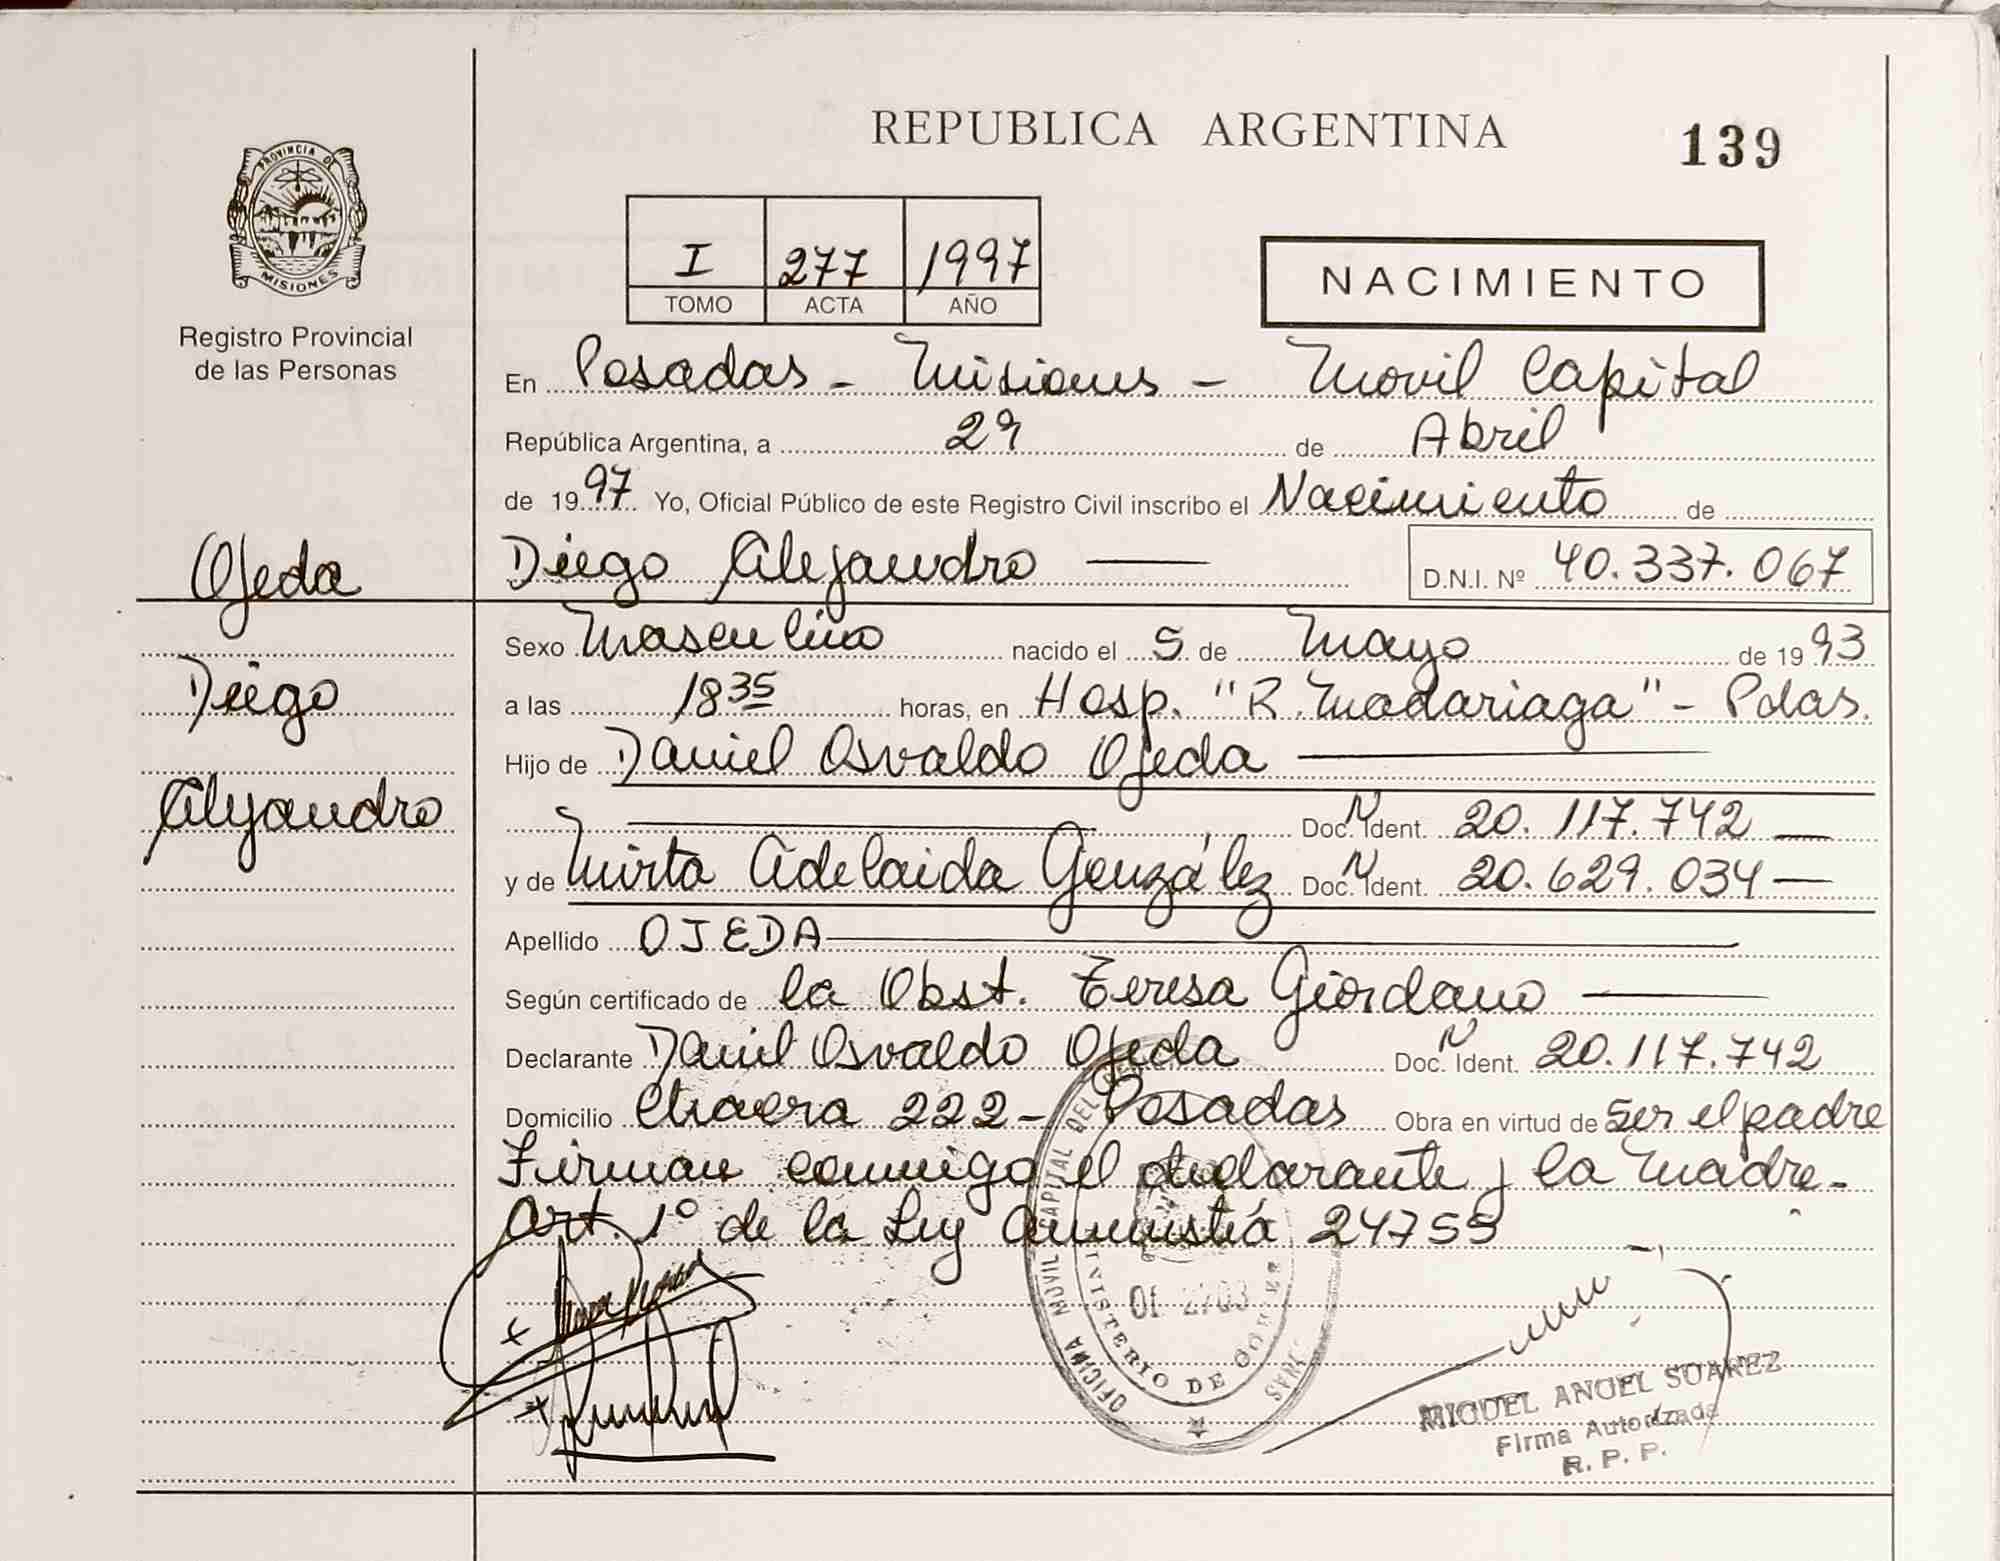 REPUBLICA ARGENTINA
139
PROVINCIA DE
MISIONES
Registro Provincial
de las Personas
I 277 1997
TOMO ACTA AÑO
NACIMIENTO
En Posadas - Misiones - Movil Capital
República Argentina, a 29 de Abril
de 1997 Yo, Oficial Público de este Registro Civil inscribo el Nacimiento de
Diego Alejandro — D.N.I. Nº 40.337.067
Ojeda
Diego
Alejandro
Sexo Masculino nacido el 5 de Mayo de 1993
a las 18 35 horas, en Hosp. "R. Madariaga" - Pdas.
Hijo de Daniel Osvaldo Ojeda —
— Doc. N Ident. 20.117.742 —
y de Mirta Adelaida González Doc. N Ident. 20.629.034 —
Apellido OJEDA —
Según certificado de la Obst. Teresa Giordano —
Declarante Daniel Osvaldo Ojeda Doc. N Ident. 20.117.742
Domicilio Chacra 222 - Posadas Obra en virtud de ser el padre
Firman conmigo el declarante y la madre -
Art. 1º de la Ley Amnistía 24755
OFICINA MOVIL CAPITAL DEL
MINISTERIO DE
MIGUEL ANGEL SUAREZ
Firma Autorizada
R. P. P.